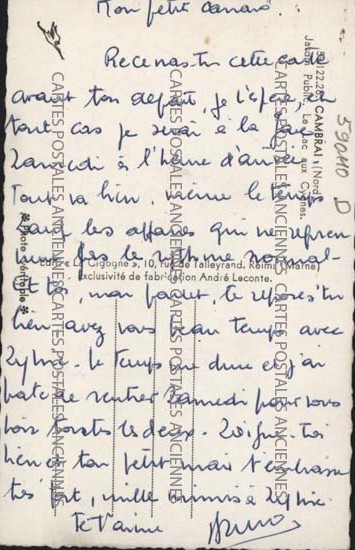 Mon petit canard
Recevras-tu cette carte
avant ton départ, je l'espère, en
tout cas je serai à la gare
Samedi à l'heure d'arrivée.
Tout va bien, même le temps
sauf les affaires qui ne repren-
nent pas le rythme normal.
Et toi, mon poulet, te reposes-tu
bien avez vous beau temps avec
Sylvie. Le temps me dure et j'ai
hâte de rentrer Samedi pour vous
voir toutes les deux. Soigne toi
bien et ton petit mari t'embrasse
très fort, mille mimis à Sylvie
Je t'aime
51.22.28. CAMBRAI (Nord)
Jardin Public. Le Lac aux Cygnes.
590110 D
Editions "La Cigogne", 10, rue de Talleyrand. Reims (Marne)
Exclusivité de fabrication André Leconte.
* Photo véritable *
CARTES POSTALES ANCIENNES
CARTES POSTALES ANCIENNES
CARTES POSTALES ANCIENNES
CARTES POSTALES ANCIENNES
CARTES POSTALES ANCIENNES
CARTES POSTALES ANCIENNES